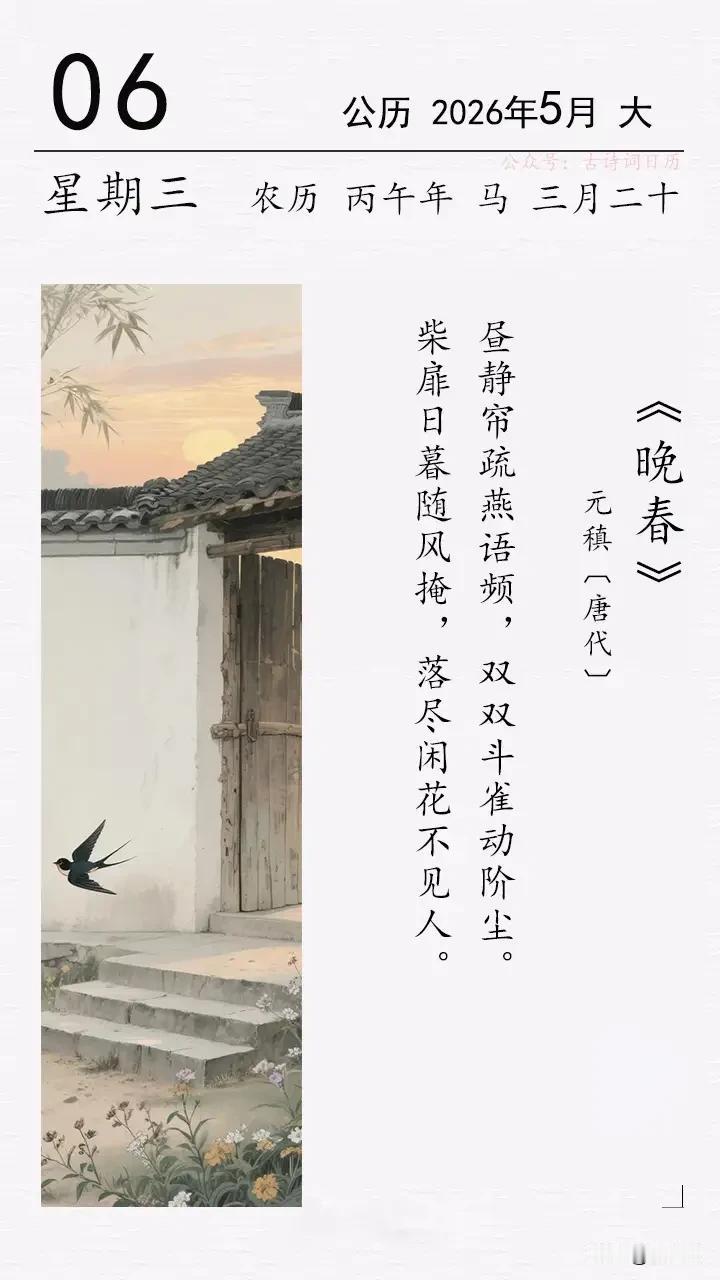 06
公历 2026年5月 大
公众号：古诗词日历
星期三 农历 丙午年 马 三月二十
《晚春》
元稹〔唐代〕
昼静帘疏燕语频，双双斗雀动阶尘。
柴扉日暮随风掩，落尽闲花不见人。